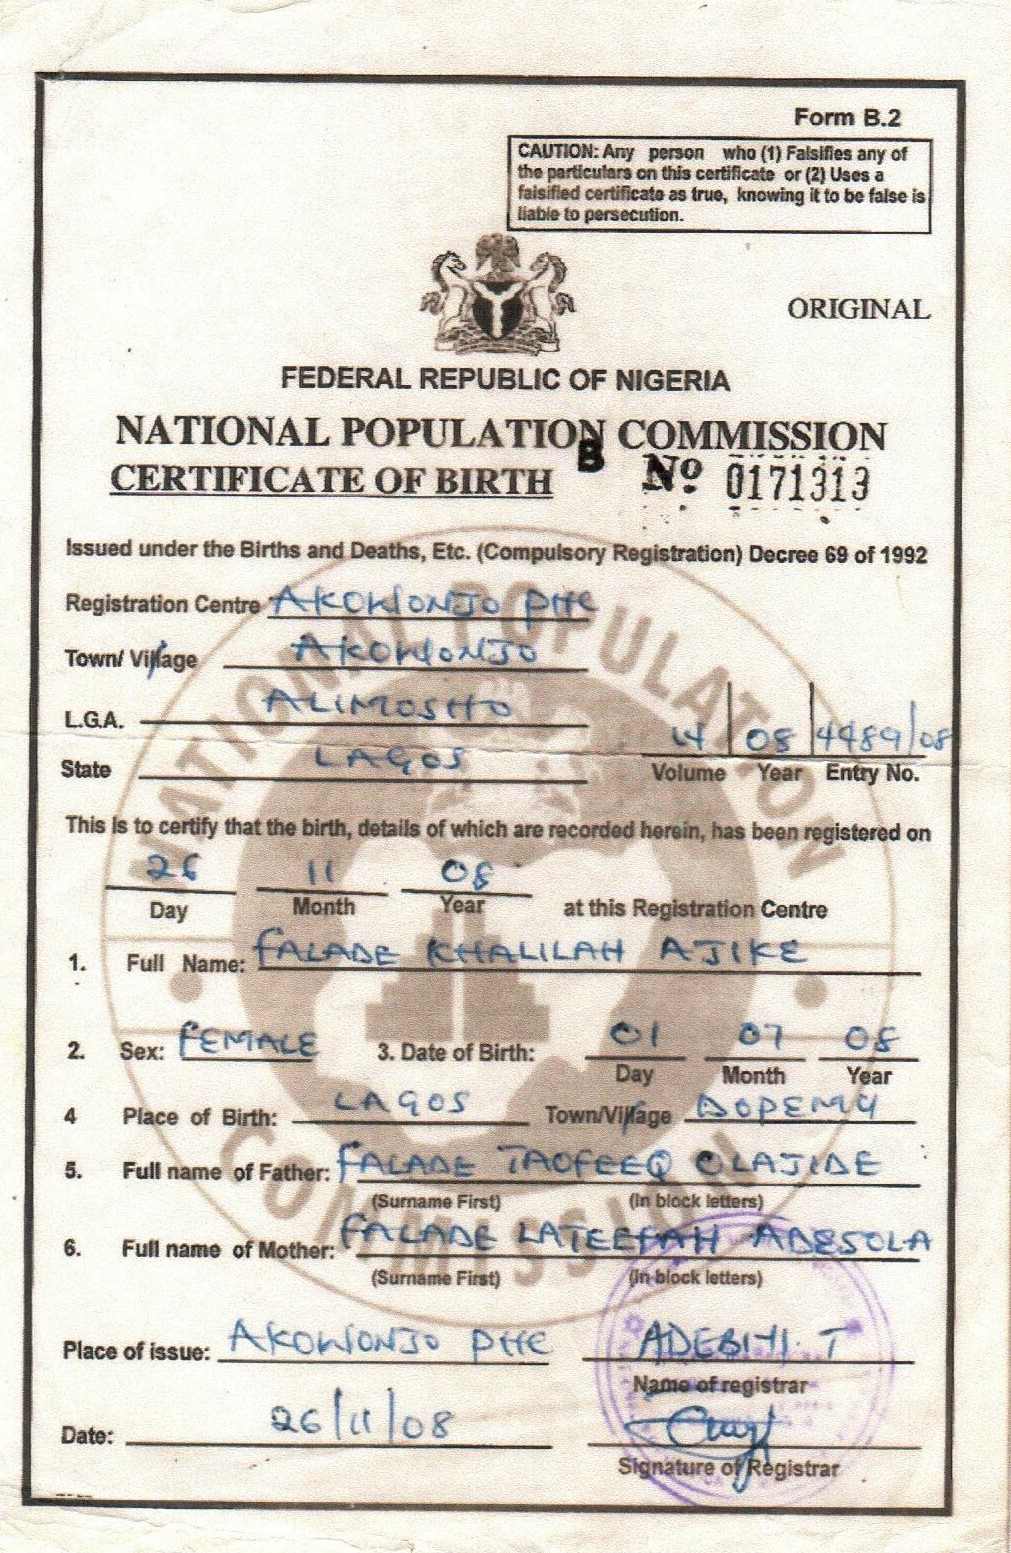 Form B.2
CAUTION: Any person who (1) Falsifies any of
the particulars on this certificate or (2) Uses a
falsified certificate as true, knowing it to be false is
liable to persecution.
ORIGINAL
FEDERAL REPUBLIC OF NIGERIA
NATIONAL POPULATION COMMISSION
CERTIFICATE OF BIRTH B No 0171313
Issued under the Births and Deaths, Etc. (Compulsory Registration) Decree 69 of 1992
Registration Centre AKOWONJO PHC
Town/ Village AKOWONJO
L.G.A. ALIMOSHO
State LAGOS
14 08 4489/08
Volume Year Entry No.
This is to certify that the birth, details of which are recorded herein, has been registered on
26 11 08
Day Month Year at this Registration Centre
1. Full Name: FALADE KHALILAH AJIKE
2. Sex: FEMALE 3. Date of Birth: 01 07 08
Day Month Year
4 Place of Birth: LAGOS Town/Village DOPEMU
5. Full name of Father: FALADE TAOFEEQ OLAJIDE
(Surname First) (In block letters)
6. Full name of Mother: FALADE LATEEFAH ADESOLA
(Surname First) (In block letters)
Place of issue: AKOWONJO PHC ADEBIYI. T
Name of registrar
Date: 26/11/08
Signature of Registrar
NATIONAL POPULATION
COMMISSION